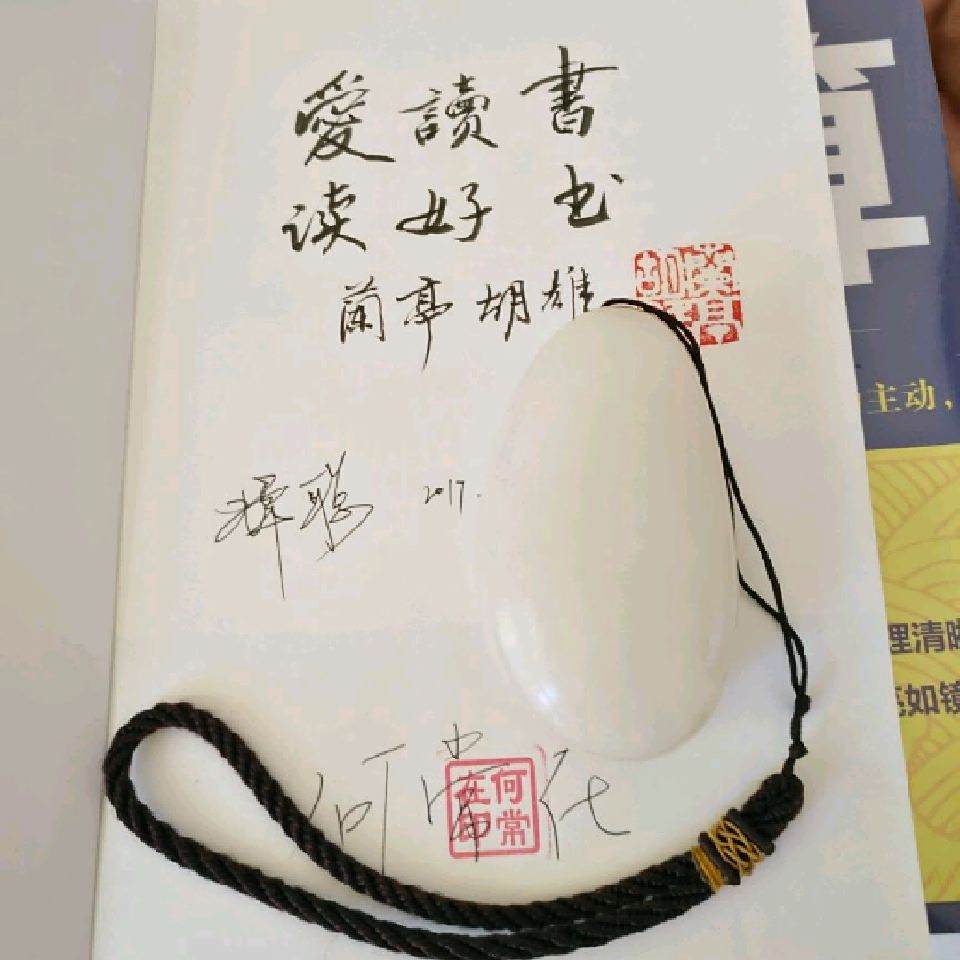 愛讀書
读好书
蘭亭胡雄
2017.
何常在
何常在印
主动，
理清晰
如镜